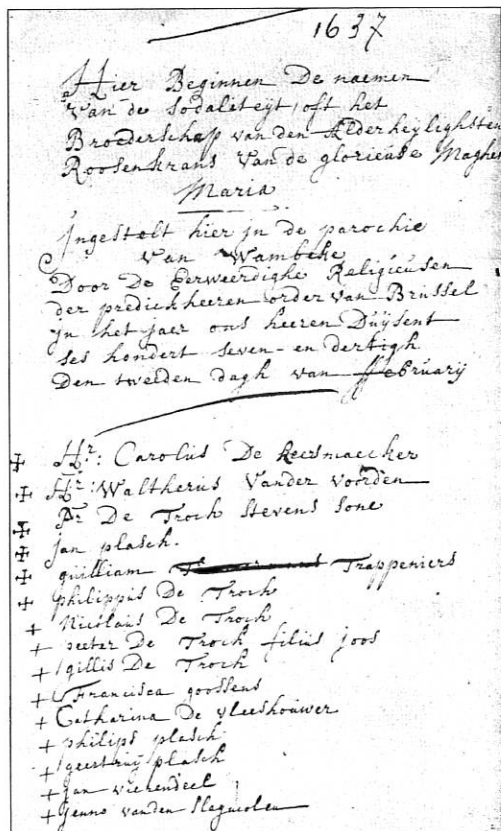 1637
Hier Beginnen De naemen
Van de sodaliteyt oft het
Broederschap van den Alderheylighsten
Roosenkrans Van de glorieuse Maghet
Maria
Ingestelt hier in de parochie
Van Wambeke
Door De Eerweerdighe Religieusen
der predickheeren order van Brussel
In het jaer ons heeren Duysent
ses hondert seven-en dertigh
Den tweeden dagh van ffebruarij
✠ Hr: Carolus De keersmaecker
✠ Hr: Waltherus Vander voorden
✠ Pr De Troch Stevens sone
✠ jan plasch.
✠ guilliam Trappeniers
+ philippus De Troch
+ Nicolaus De Troch
+ peeter De Troch filius joos
+ gillis De Troch
+ Francisca goossens
+ Catharina De vleeshouwer
+ philips plasch
+ geertruy plasch
+ jan vierendeel
+ jenno vanden